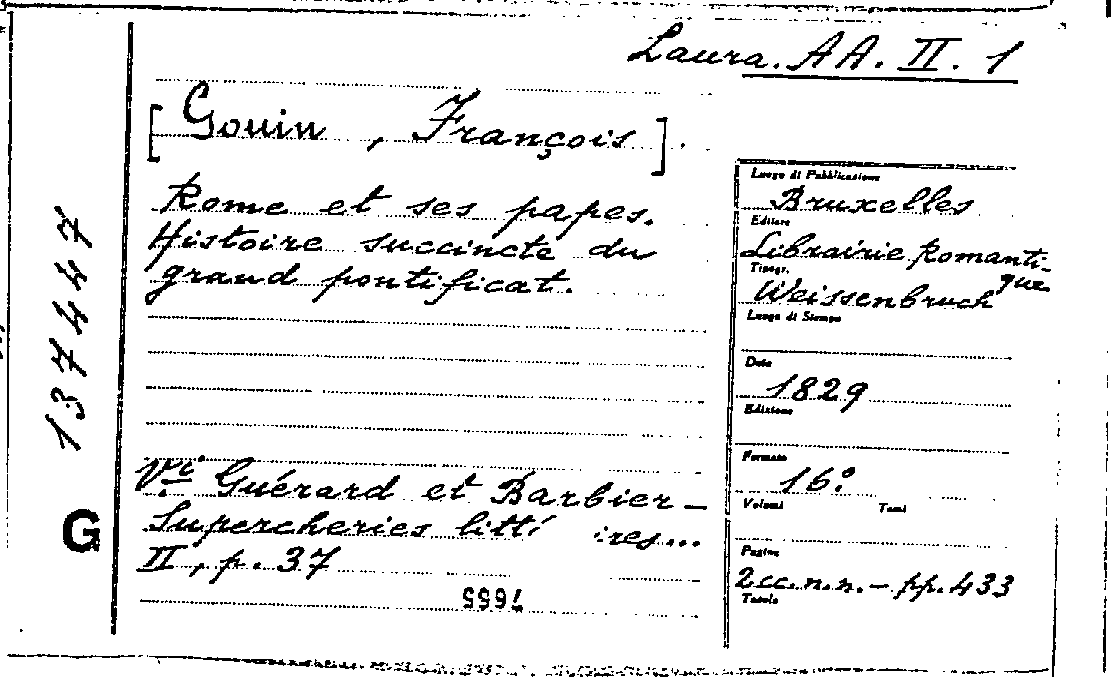 Laura. AA. II. 1
[Gouin, François].
Rome et ses papes.
Histoire succincte du
grand pontificat.
Vi Guérard et Barbier –
Supercheries litté ires...
II, p. 37
137447
G
Luogo di Pubblicazione
Bruxelles
Editore
Librairie Romanti-
que
Tipogr.
Weissenbruch
Luogo di Stampa
Data
1829
Edizione
Formato
16º
Volumi Tomi
Pagine
2 cc. n. n. – pp. 433
Tavole